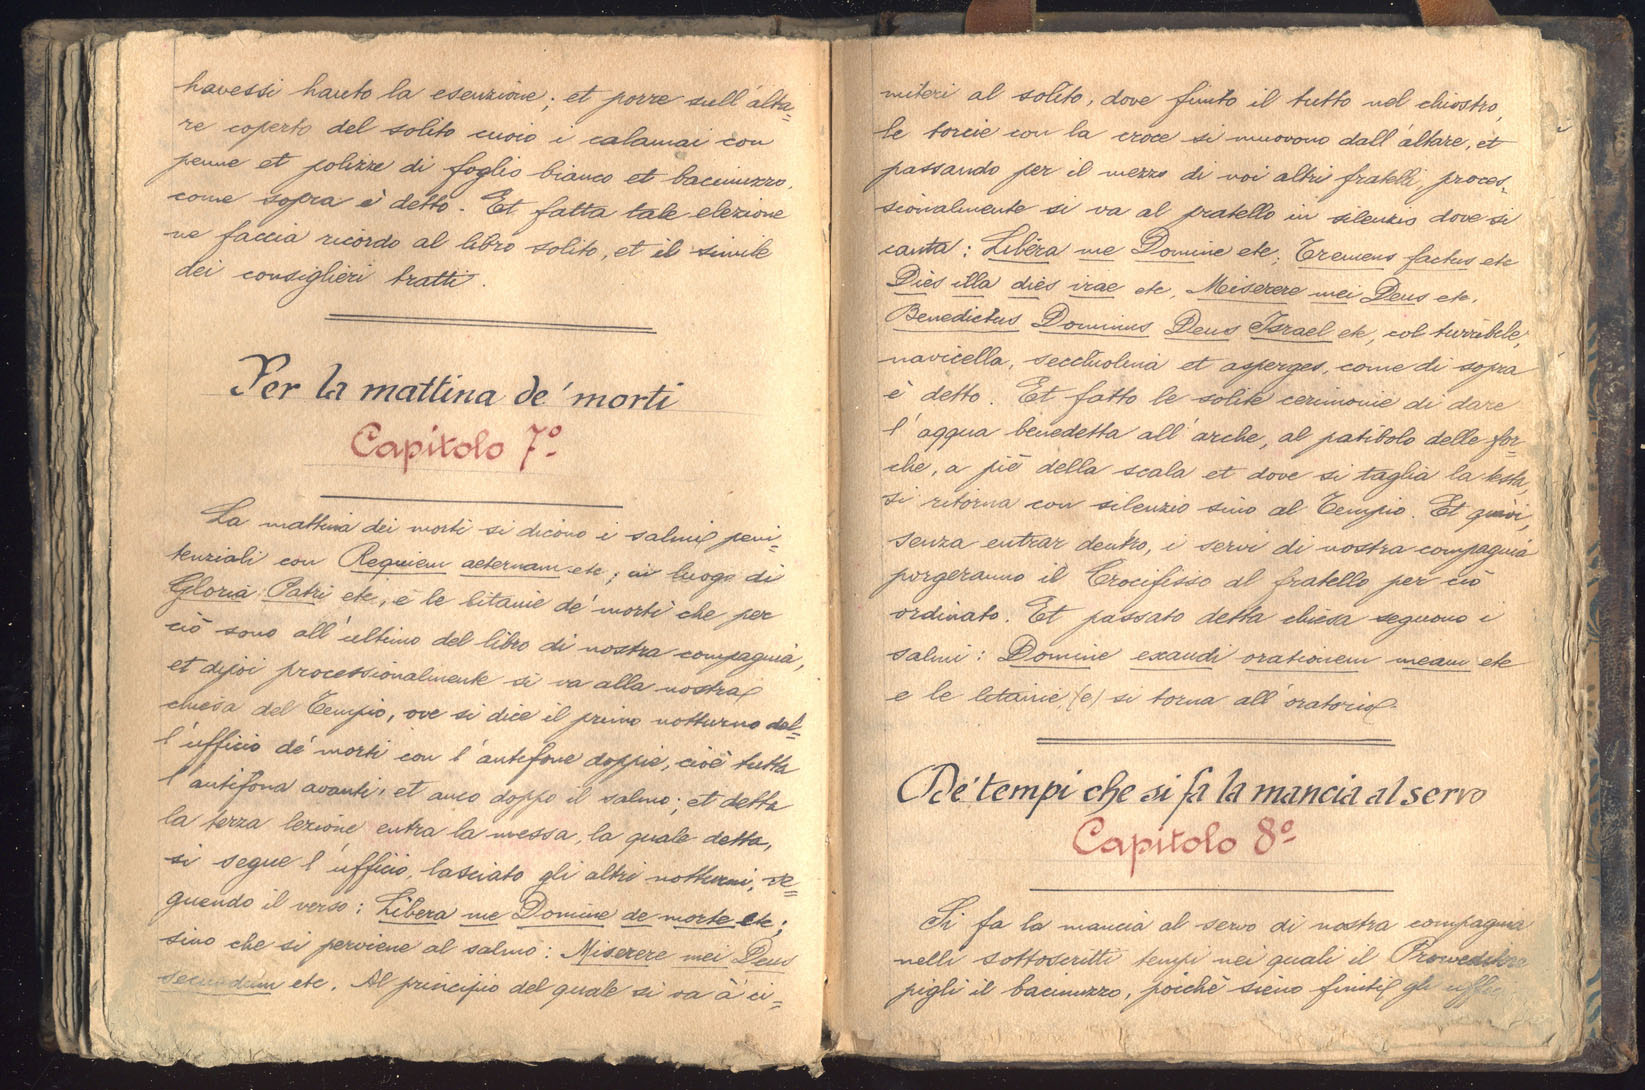 havessi hauto la esenzione; et porre sull'alta=
re coperto del solito cuoio i calamai con
penne et polizze di foglio bianco et bacinuzzo,
come sopra è detto. Et fatta tale elezione
ne faccia ricordo al libro solito, et il simile
dei consiglieri tratti.
Per la mattina de' morti
Capitolo 7º
La mattina dei morti si dicono i salmi peni=
tenziali con Requiem aeternam etc; in luogo di
Gloria Patri etc, e le litanie de' morti che per
ciò sono all'ultimo del libro di nostra compagnia,
et dipoi processionalmente si va alla nostra
chiesa del Tempio, ove si dice il primo notturno del=
l'ufficio de' morti con l'antifone doppie, cioè tutta
l'antifona avanti, et anco doppo il salmo; et detta
la terza lezione entra la messa, la quale detta,
si segue l'ufficio, lasciato gli altri notturni, se=
guendo il verso: Libera me Domine de morte etc;
sino che si perviene al salmo: Miserere mei Deus
secundum etc. Al principio del quale si va a' ci=
miteri al solito, dove finito il tutto nel chiostro,
le torcie con la croce si muovono dall'altare, et
passando per il mezzo di noi altri fratelli, proces=
sionalmente si va al pratello in silenzio dove si
canta: Libera me Domine etc; Tremens factus etc
Dies illa dies irae etc, Miserere mei Deus etc.
Benedictus Dominus Deus Israel etc, col turribile,
navicella, secchiolina et asperges, come di sopra
è detto. Et fatto le solite cerimonie di dare
l'aqqua benedetta all'arche, al patibolo delle for=
che, a piè della scala et dove si taglia la testa,
si ritorna con silenzio sino al Tempio. Et quivi,
senza entrar dentro, i servi di nostra compagnia
porgeranno il Crocifisso al fratello per ciò
ordinato. Et passato detta chiesa seguono i
salmi: Domine exaudi orationem meam etc
e le litanie (e) si torna all'oratorio.
De' tempi che si fa la mancia al servo
Capitolo 8º
Si fa la mancia al servo di nostra compagnia
nelli sottoscritti tempi nei quali il Provveditore
pigli il bacinuzzo, poichè sieno finiti gli uffici